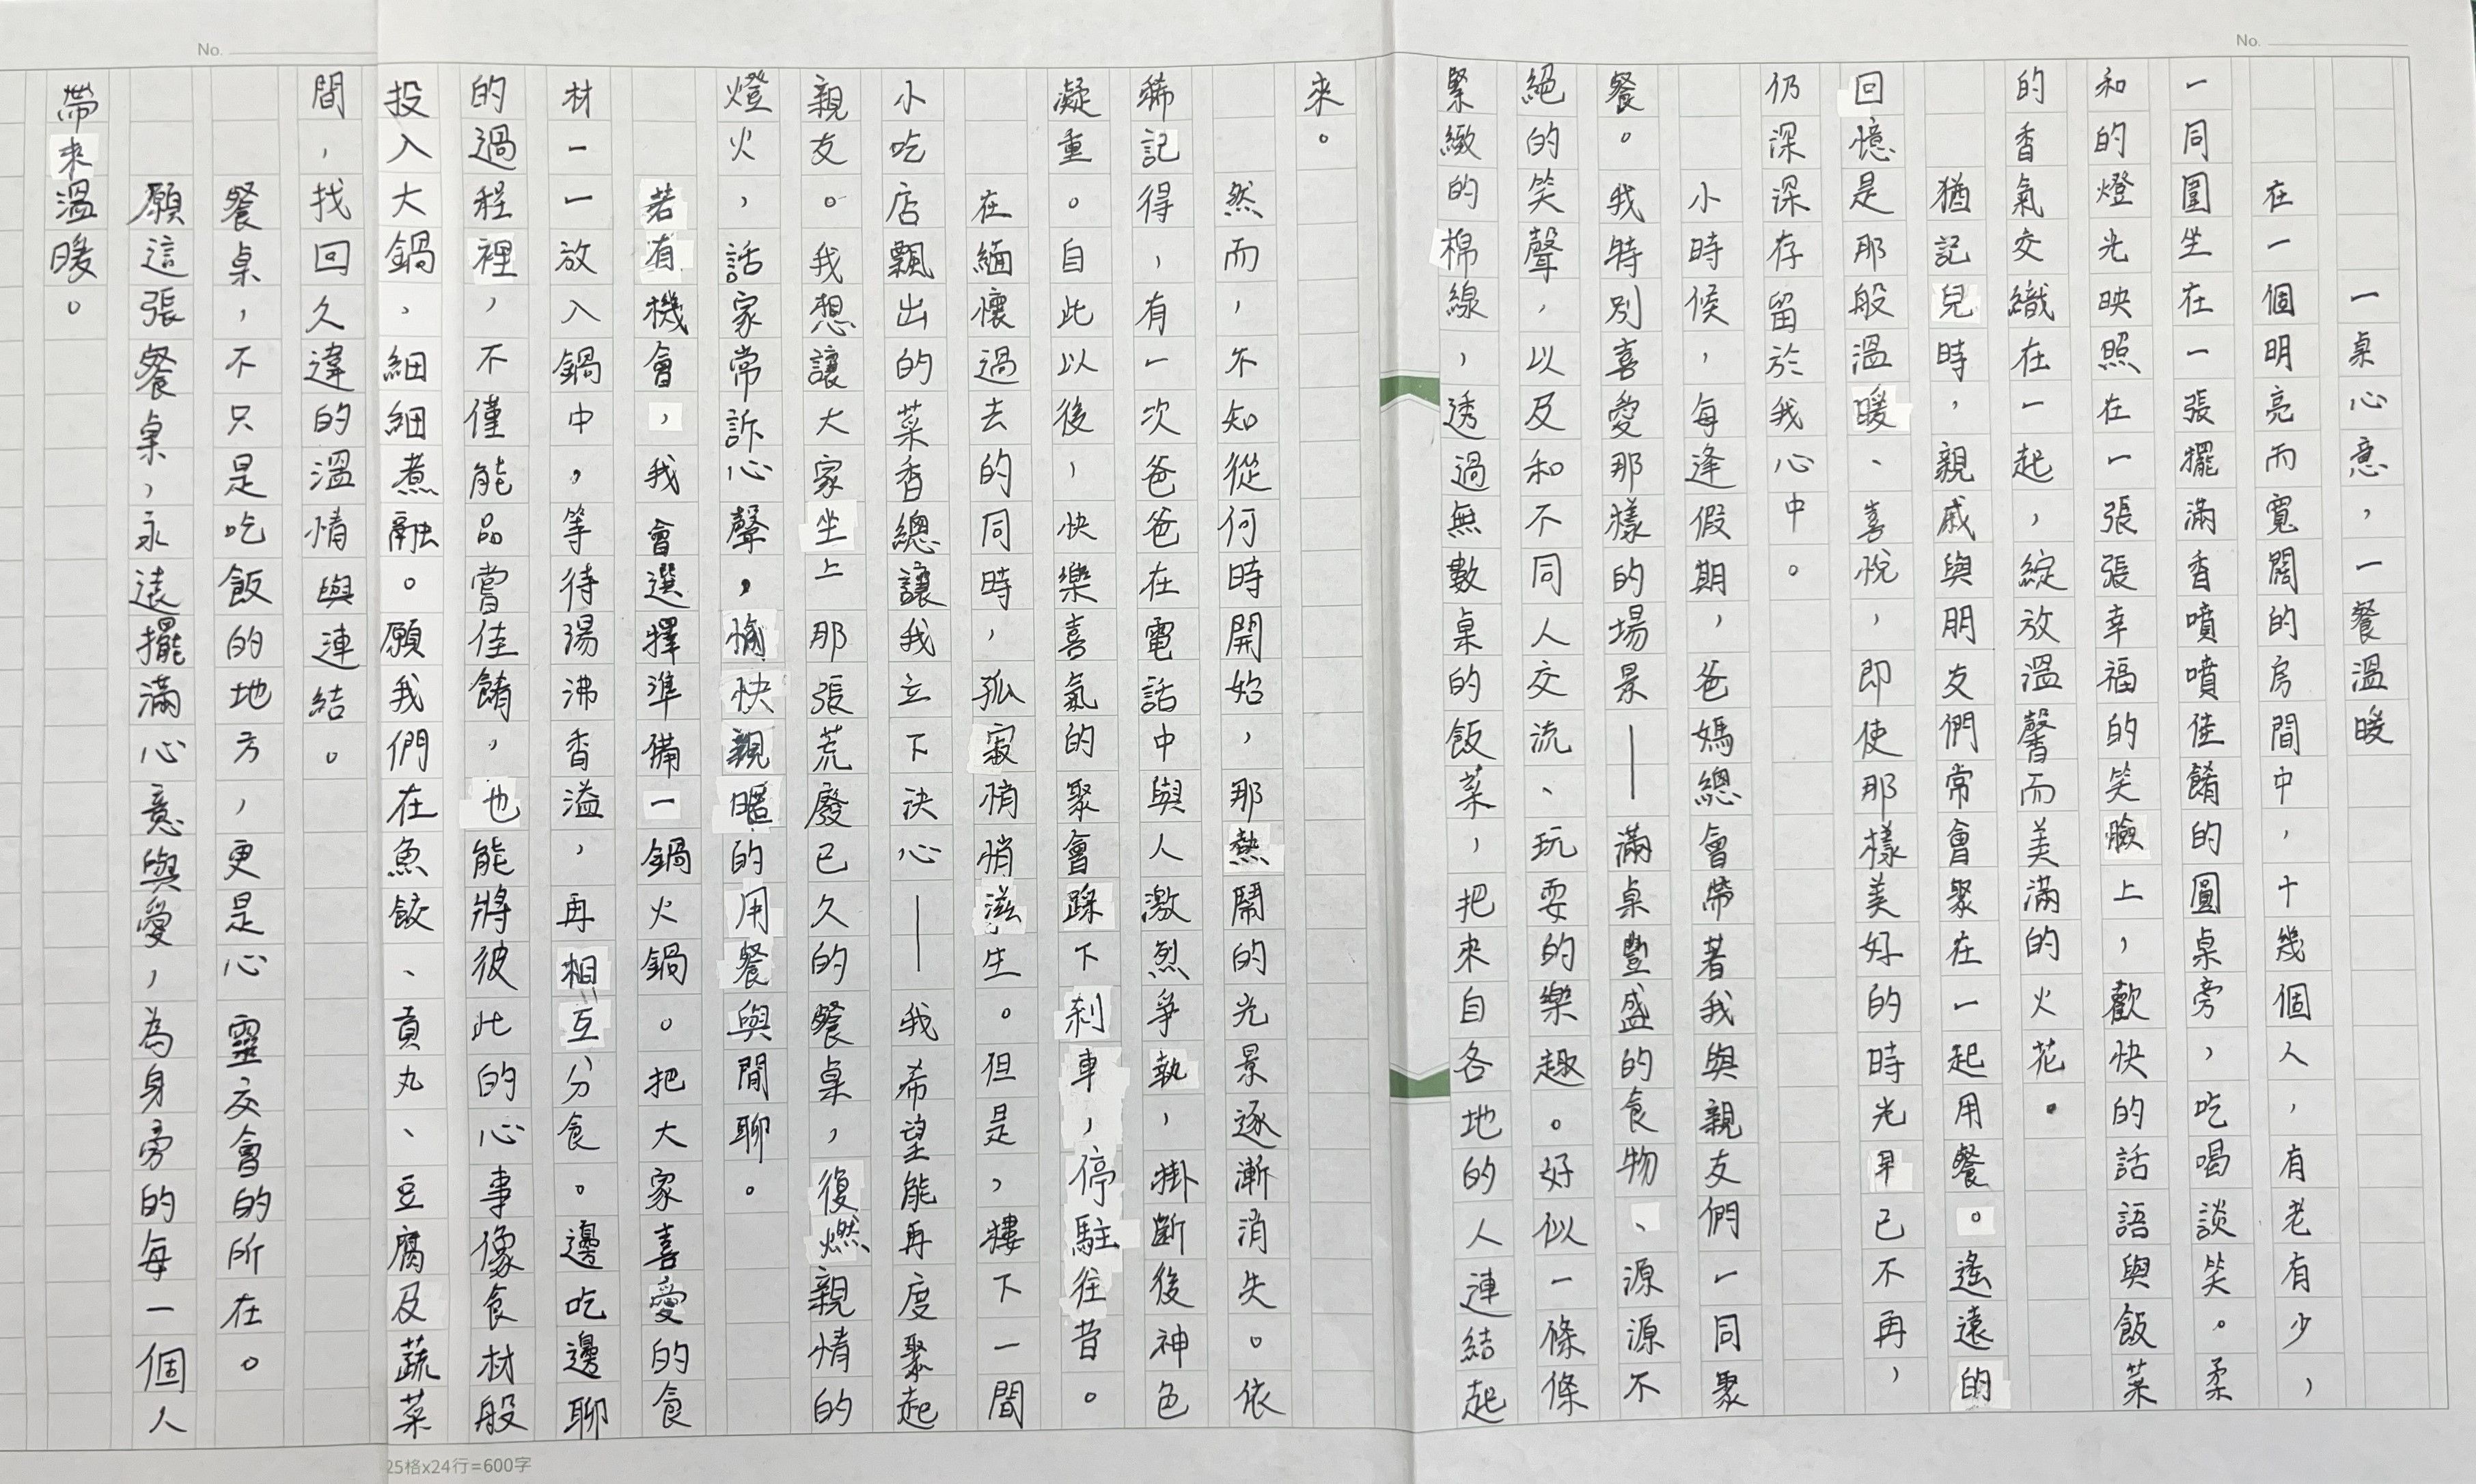 No.
一桌心意，一餐溫暖
在一個明亮而寬闊的房間中，十幾個人，有老有少，
一同圍坐在一張擺滿香噴噴佳餚的圓桌旁，吃喝談笑。柔
和的燈光映照在一張張幸福的笑臉上，歡快的話語與飯菜
的香氣交織在一起，綻放溫馨而美滿的火花。
猶記兒時，親戚與朋友們常會聚在一起用餐。遙遠的
回憶是那般溫暖、喜悅，即使那樣美好的時光早已不再，
仍深深存留於我心中。
小時候，每逢假期，爸媽總會帶著我與親友們一同聚
餐。我特別喜愛那樣的場景——滿桌豐盛的食物、源源不
絕的笑聲，以及和不同人交流、玩耍的樂趣。好似一條條
緊緻的棉線，透過無數桌的飯菜，把來自各地的人連結起
來。
然而，不知從何時開始，那熱鬧的光景逐漸消失。依
稀記得，有一次爸爸在電話中與人激烈爭執，掛斷後神色
凝重。自此以後，快樂喜氣的聚會踩下剎車，停駐往昔。
在緬懷過去的同時，孤寂悄悄滋生。但是，樓下一間
小吃店飄出的菜香總讓我立下決心——我希望能再度聚起
親友。我想讓大家坐上那張荒廢已久的餐桌，復燃親情的
燈火，話家常訴心聲，愉快親暱的用餐與閒聊。
若有機會，我會選擇準備一鍋火鍋。把大家喜愛的食
材一一放入鍋中，等待湯沸香溢，再相互分食。邊吃邊聊
的過程裡，不僅能品嘗佳餚，也能將彼此的心事像食材般
投入大鍋、細細煮融。願我們在魚餃、貢丸、豆腐及蔬菜
間，找回久違的溫情與連結。
餐桌，不只是吃飯的地方，更是心靈交會的所在。
願這張餐桌，永遠擺滿心意與愛，為身旁的每一個人
帶來溫暖。
No.
25格x24行=600字